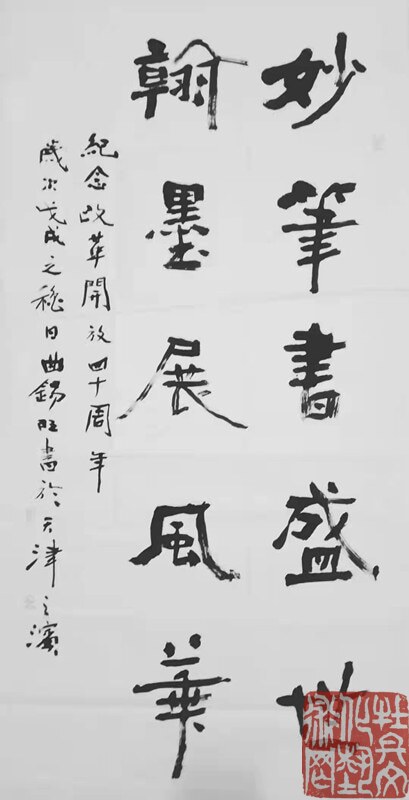 妙筆書盛世
翰墨展風華
紀念改革開放四十周年
歲次戊戌之穐日曲錫旺書於天津之濱